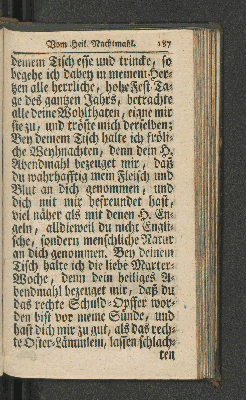 Vom Heil. Nachtmahl. 187
deinem Tisch esse und trincke, so
begehe ich dabey in meinem Her-
tzen alle herrliche, hohe Fest-Ta-
ge des gantzen Jahrs, betrachte
alle deine Wohlthaten, eigne mir
sie zu, und tröste mich derselben;
Bey deinem Tisch halte ich fröli-
che Weyhnachten, denn dein H.
Abendmahl bezeuget mir, daß
du wahrhafftig mein Fleisch und
Blut an dich genommen, und
dich mit mir befreundet hast,
viel näher als mit denen H. En-
geln, alldieweil du nicht Engli-
sche, sondern menschliche Natur
an dich genommen. Bey deinem
Tisch halte ich die liebe Marter-
Woche, denn dein heiliges A-
bendmahl bezeuget mir, daß du
das rechte Schuld-Opffer wor-
den bist vor meine Sünde, und
hast dich mir zu gut, als das rech-
te Oster-Lämmlein, lassen schlach-
ten